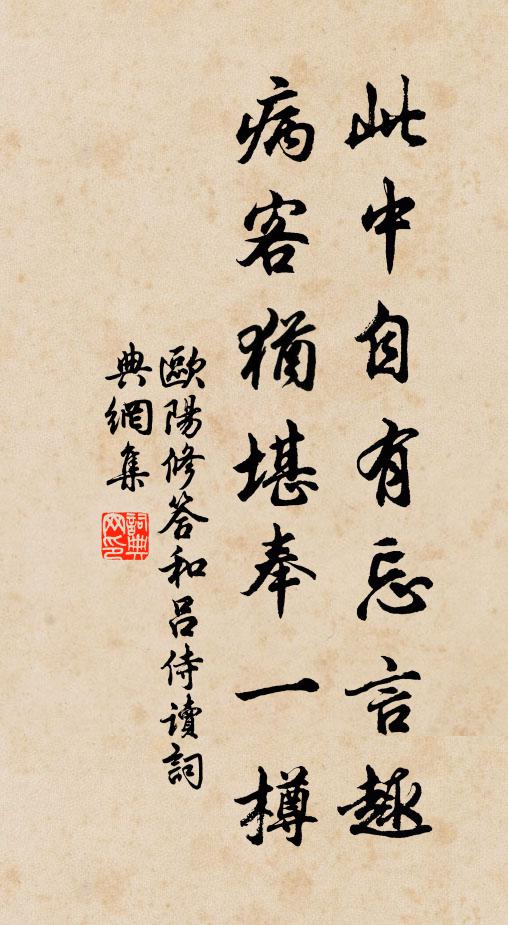 此中自有忘言趣
病客猶堪奉一樽
歐陽修答和呂侍讀詞
典網集
詞典網印